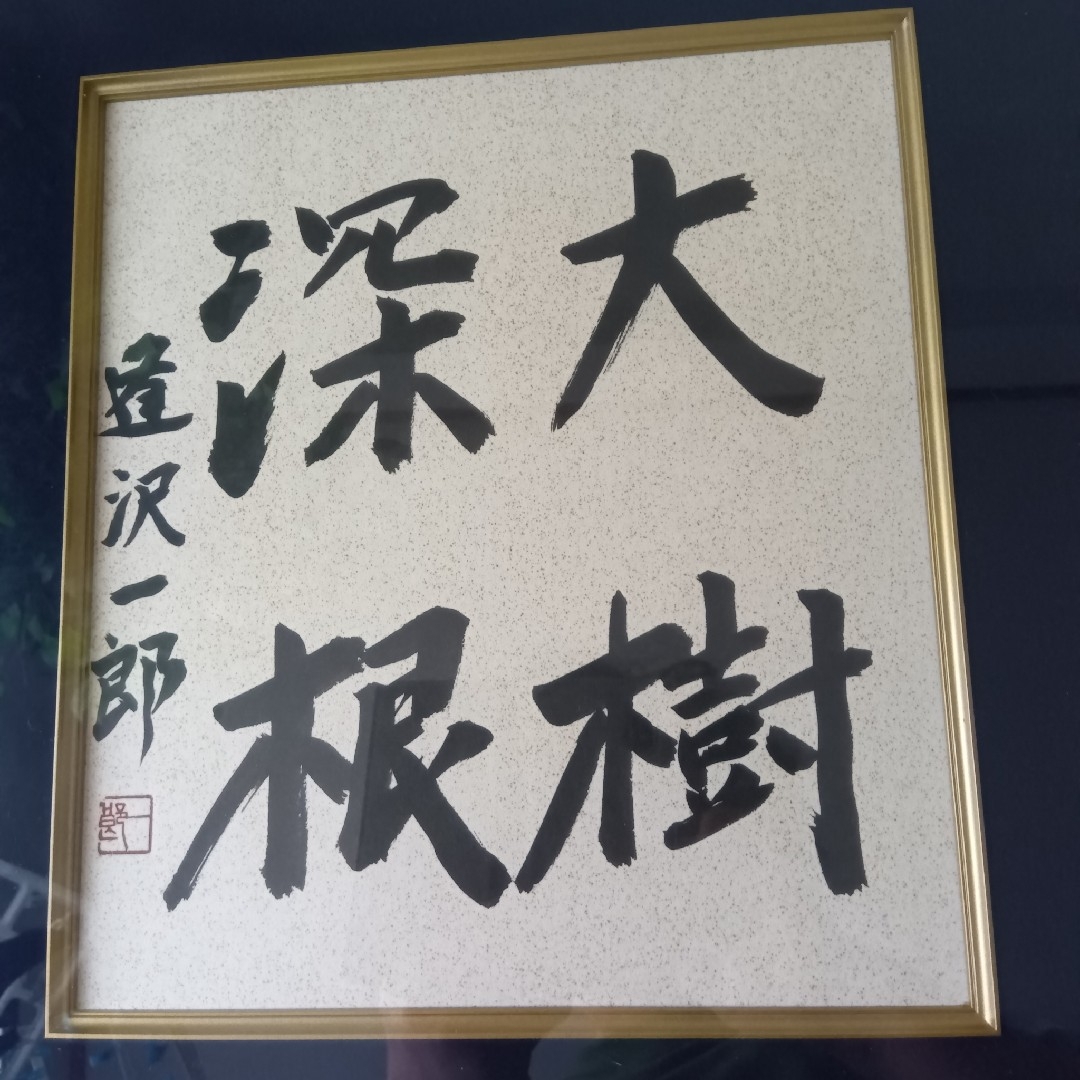 大樹
深根
逢沢一郎
一郎